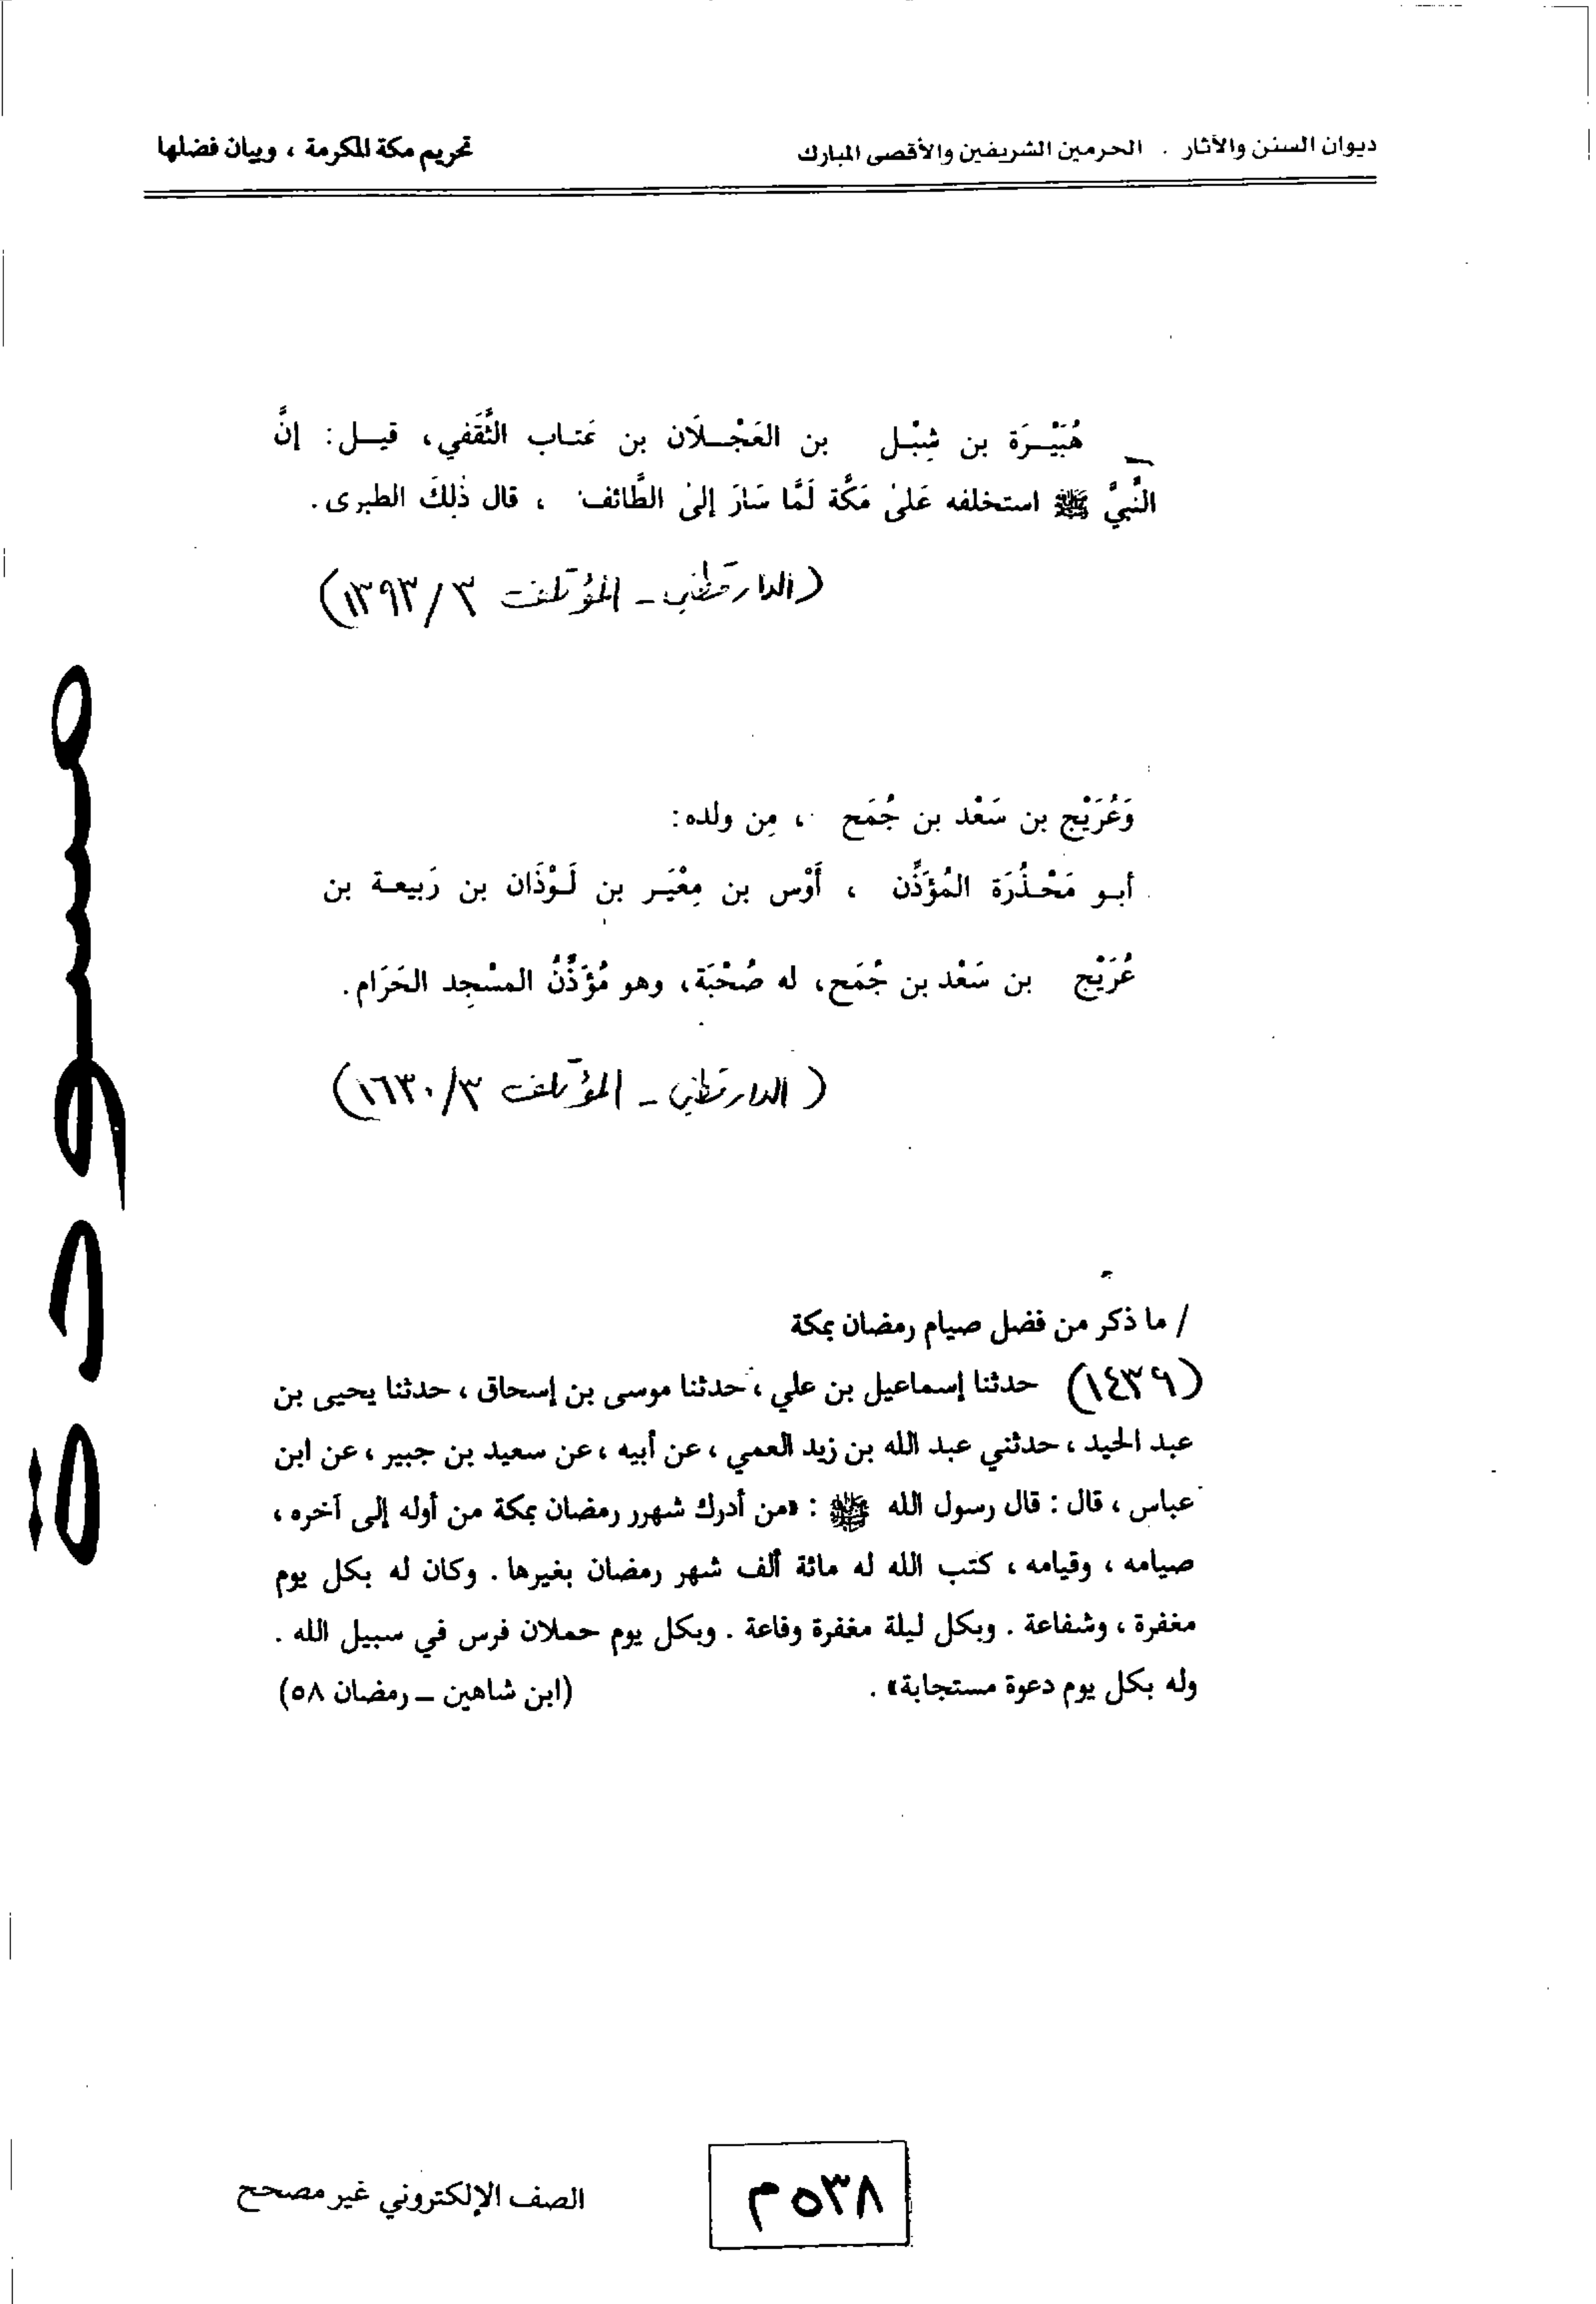 ديوان السنن والآثار . الحرمين الشريفين والأقصى المبارك
تحريم مكة المكرمة ، وبيان فضلها
هُبَيْـرَة بن شِبْـل بن العَجْـلَان بن عَتـاب الثَّقَفي، قيـل: إنَّ
النَّبيَّ ﷺ استخلفه عَلىٰ مَكَّة لَمَّا سَارَ إلىٰ الطَّائف ، قال ذٰلِكَ الطبرى.
(الدارقطني - المؤتلف ٣/١٣٩٣)
وَعُرَيْج بن سَعْد بن جُمَح ، مِن ولده:
أبـو مَحْـذُرَة المُؤَذِّن ، أَوْس بن مِعْيَـر بن لَـوْذَان بن رَبيعـة بن
عُرَيْج بن سَعْد بن جُمَح، له صُحْبَة، وهو مُؤَذِّنُ المسْجِد الحَرَام.
(الدارقطني - المؤتلف ٣/١٦٣٠)
/ ما ذكر من فضل صيام رمضان بمكة
(١٤٣٩) حدثنا إسماعيل بن علي ، حدثنا موسى بن إسحاق ، حدثنا يحيى بن
عبد الحيد ، حدثني عبد الله بن زيد العمي ، عن أبيه ، عن سعيد بن جبير ، عن ابن
عباس ، قال : قال رسول الله ﷺ : «من أدرك شهرر رمضان بمكة من أوله إلى آخره ،
صيامه ، وقيامه ، كتب الله له مائة ألف شهر رمضان بغيرها . وكان له بكل يوم
مغفرة ، وشفاعة . وبكل ليلة مغفرة وفاعة . وبكل يوم حملان فرس في سبيل الله .
وله بكل يوم دعوة مستجابة» . (ابن شاهين – رمضان ٥٨)
مسودة
٥٣٨م
الصف الإلكتروني غير مصحح